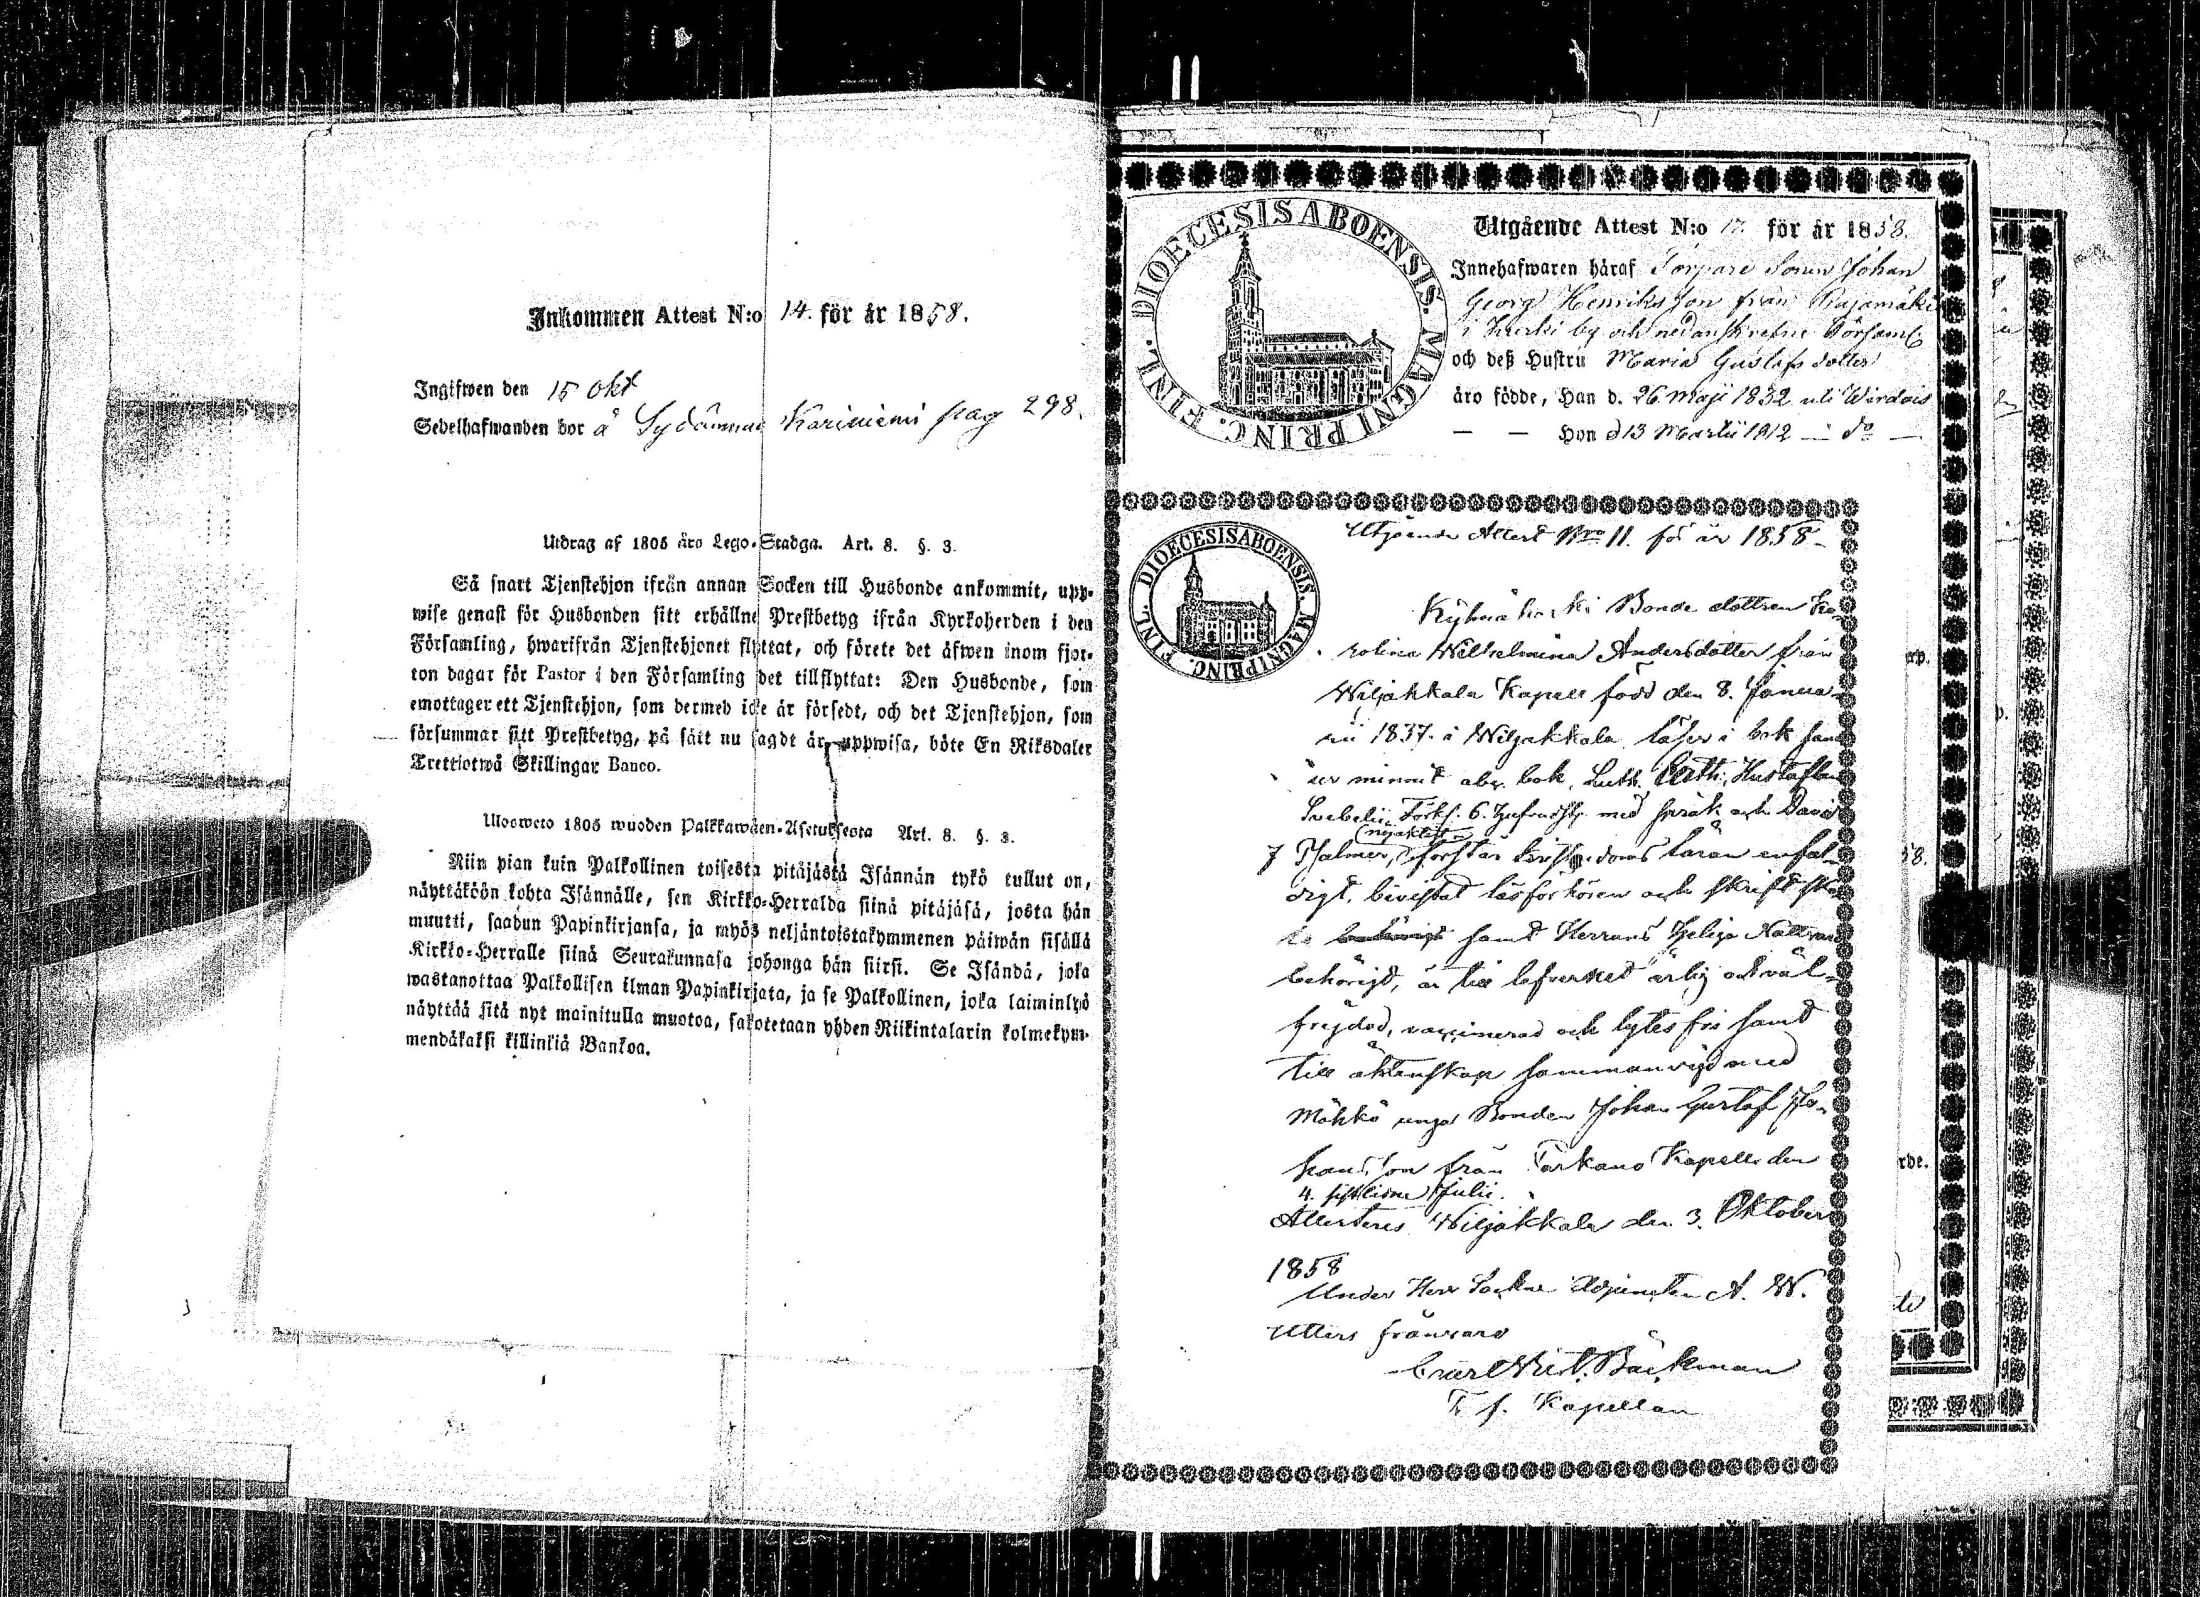 Inkommen Attest N:o 14. för år 1858.
Ingifwen den 15 Okt
Sedelhafwanden bor å Sydänmaa Kariniemi pag 298.
Utdrag af 1805 års Lego-Stadga. Art. 8. §. 3.
Så snart Tjenstehjon ifrån annan Socken till Husbonde ankommit, upp-
wise genast för Husbonden sitt erhållne Prestbetyg ifrån Kyrkoherden i den
Församling, hwarifrån Tjenstehjonet flyttat, och förete det äfwen inom fjor-
ton dagar för Pastor i den Församling det tillflyttat: Den Husbonde, som
emottager ett Tjenstehjon, som dermed icke är försedt, och det Tjenstehjon, som
försummar sitt Prestbetyg, på sätt nu sagdt är, uppwisa, böte En Riksdaler
Trettiotwå Skillingar Banco.
Ulosweto 1805 wuoden Palkkawäen-Asetuksesta Art. 8. §. 3.
Niin pian kuin Palkollinen toisesta pitäjästä Isännän tykö tullut on,
näyttäköön kohta Isännälle, sen Kirkko-Herralda siinä pitäjäsä, josta hän
muutti, saadun Papinkirjansa, ja myös neljäntoistakymmenen päiwän sisällä
Kirkko-Herralle siinä Seurakunnasa johonga hän siirsi. Se Isändä, joka
wastanottaa Palkollisen ilman Papinkirjata, ja se Palkollinen, joka laiminlyö
näyttää sitä nyt mainitulla muotoa, sakotetaan yhden Riikintalarin kolmekym-
mendäkaksi killinkiä Bankoa.
DIOECESIS ABOENSIS. MAGNI PRINC. FINL.
Utgående Attest N:o 17. för år 1858.
Innehafwaren häraf Torpare Sonen Johan
Georg Henriksson från Rajamäki
i Kurki by och nedanskrefne Församl
och deß Hustru Maria Gustafsdotter
äro födde, Han d. 26 Maji 1832 uti Wirdois
— — Hon d 13 Martii 1812 — do —
DIOECESIS ABOENSIS. MAGNI PRINC. FINL.
Utgående Attest Nro 11. för år 1858
Bonde dottren Ka-
rolina Wilhelmina Andersdotter från
Wiljakkala Kapell född den 8. Janua-
rii 1837. i Wiljakkala läser i bok samt
ur minnet abc bok, Luth. Cath. Hustaflan
Svebelii Förkl. 6. Hufvudst. med språk och Davids
7 Psalmer, förstår läran enfal-
digt, bevistat läsförhören och skrift
samt Herrans Helige Nattvard
behörigt, är till lefvernet ärlig och väl-
frejdad, vaccinerad och lytesfri samt
till äktenskap sammanvigd med
Möhkö unga Bonden Johan Gustaf Jo-
hansson från Parkano Kapell den
4. sistlidne Julii.
Attesteras Wiljakkala den 3. Oktober
1858
Under Herr Sockne Adjuncten A. W.
Utters frånvaro
Carl Wilh. Bäckman
T. f. Kapellan